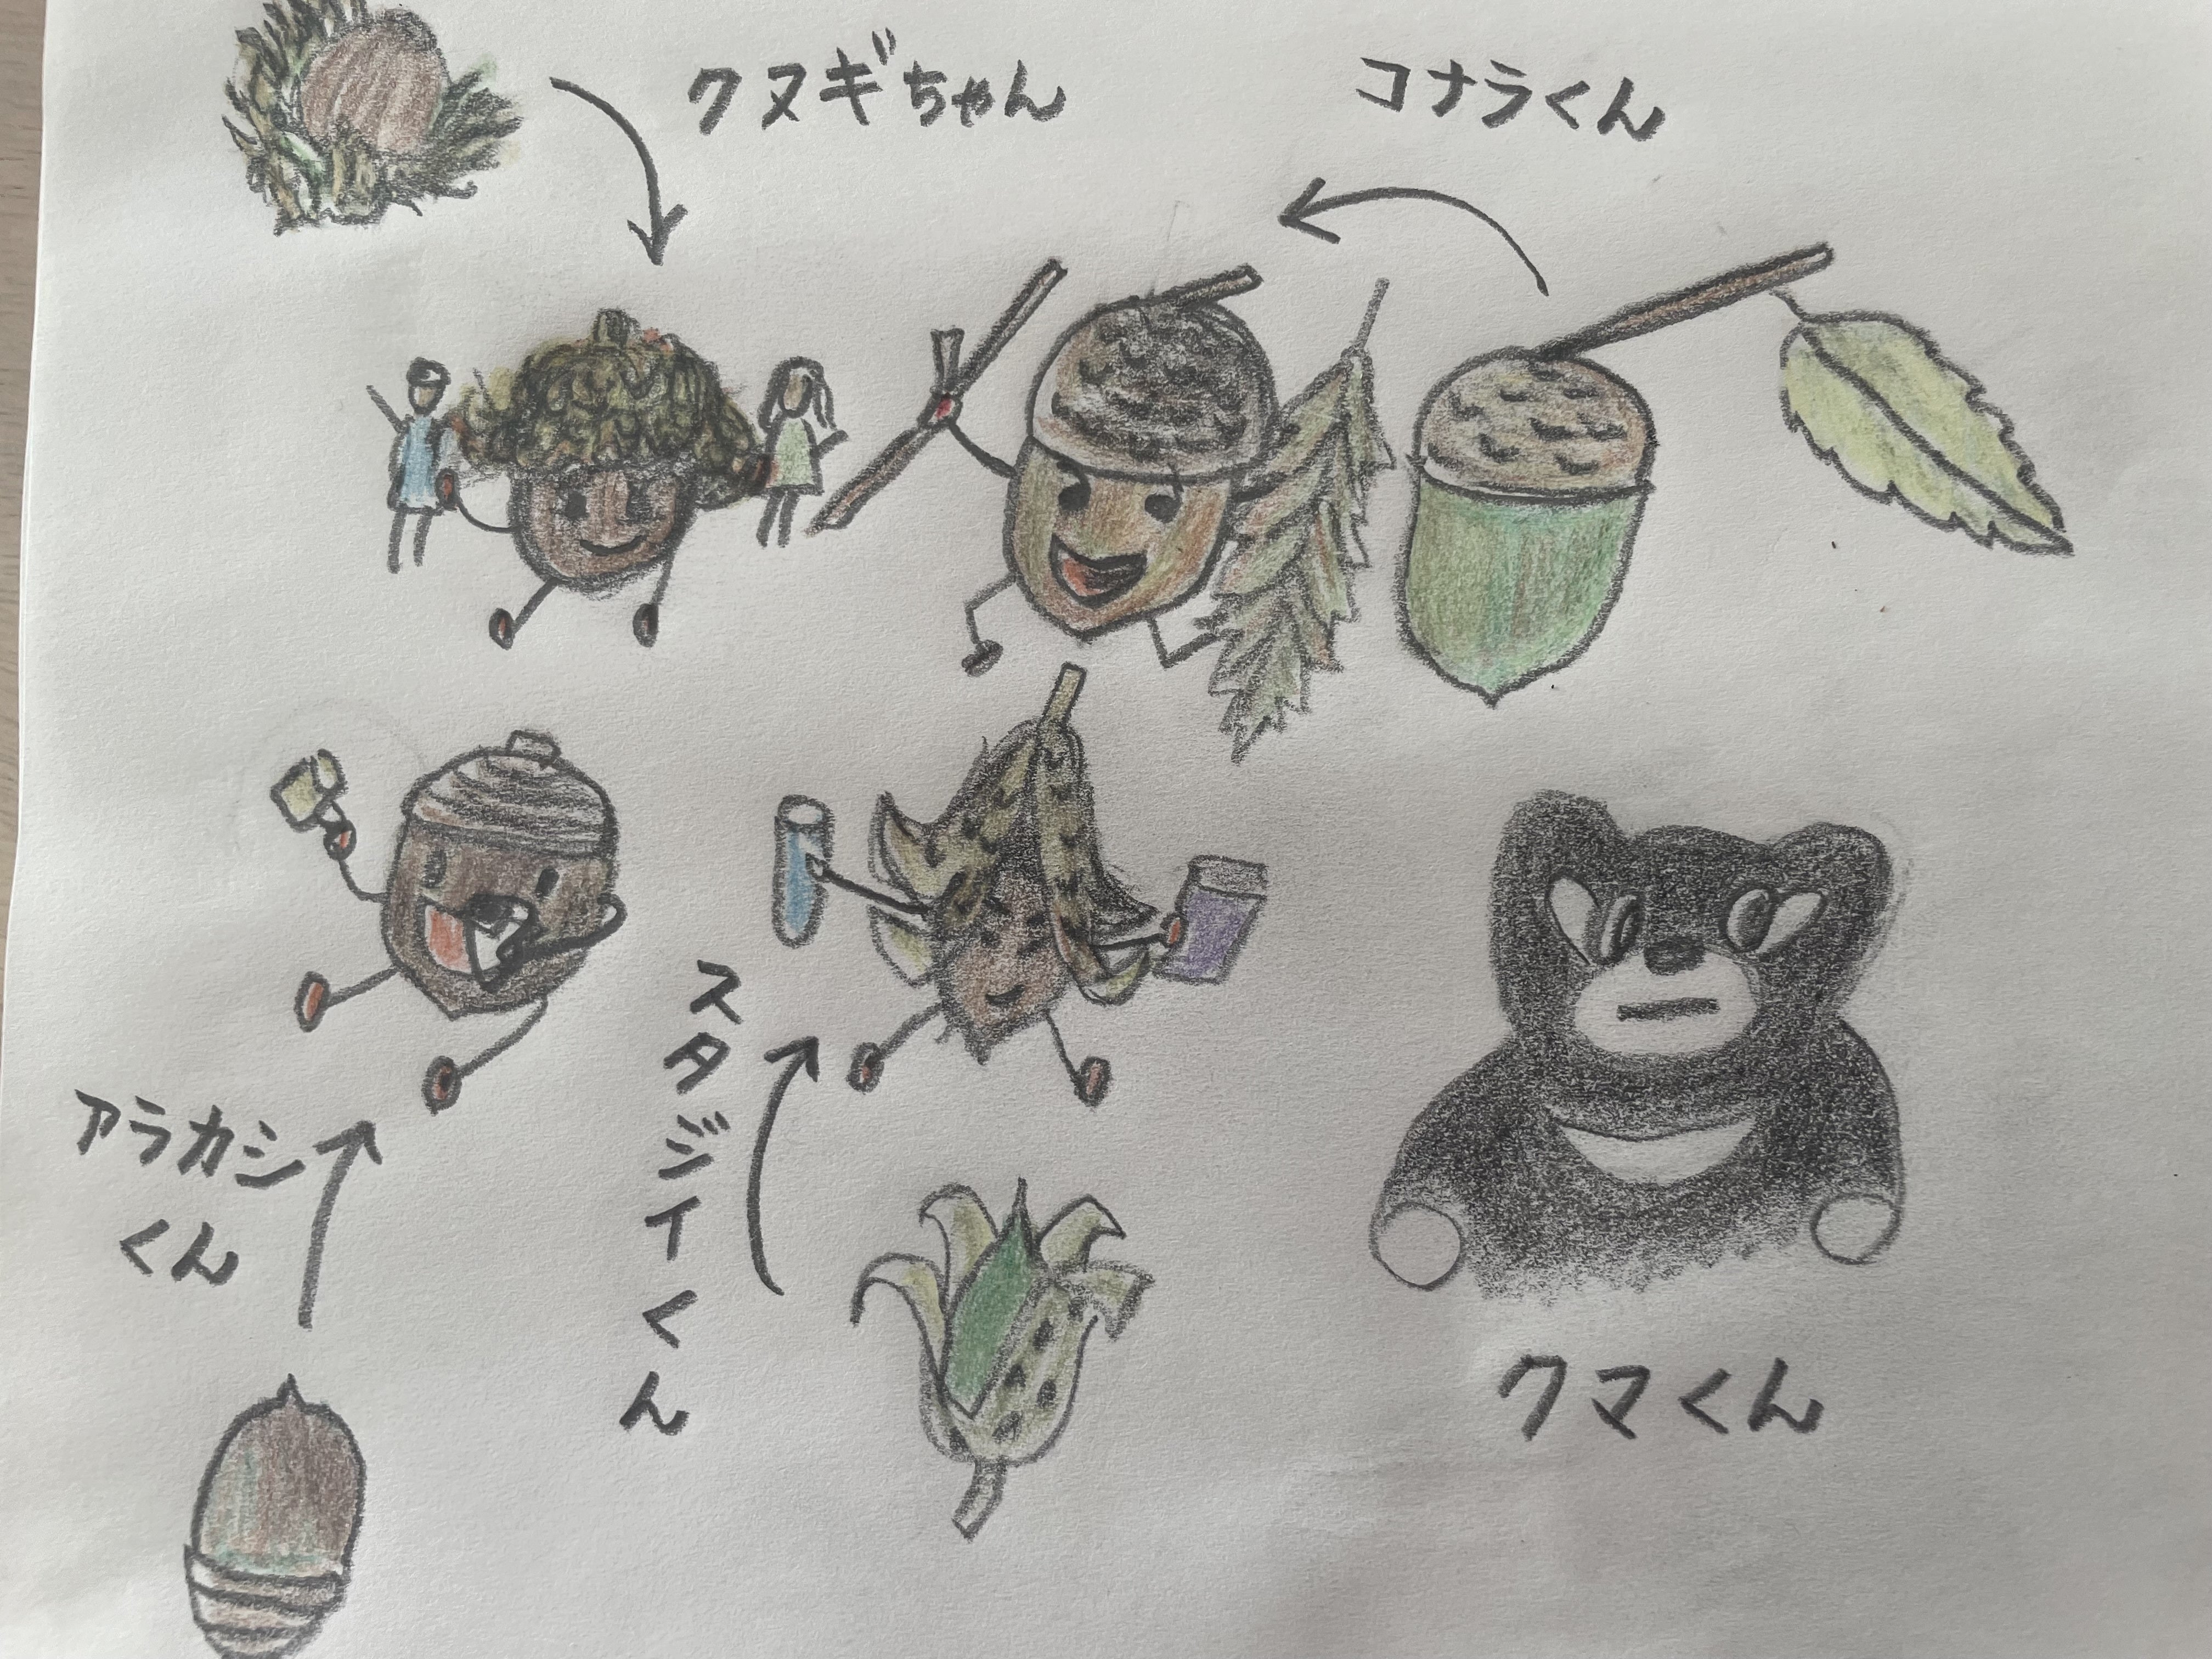 クヌギちゃん
コナラくん
アラカシ
くん
スタジイくん
クマくん